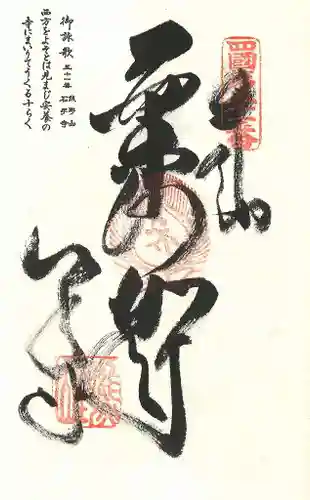 四國第五十一番
奉納
薬師
石手寺
御詠歌 五十一番 熊野山 石手寺
西方をよそとは見まじ安養の
寺にまいりてうくる十らく